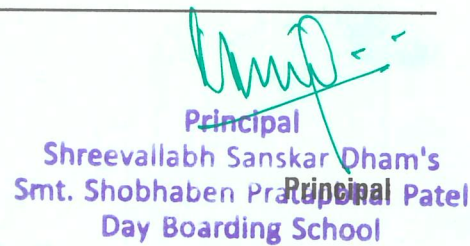 Principal
Shreevallabh Sanskar Dham's
Smt. Shobhaben Patel
Principal
Day Boarding School